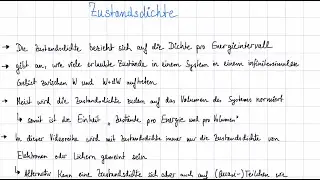 Zustandsdichte
→ Die Zustandsdichte bezieht sich auf die Dichte pro Energieintervall
→ gibt an, wie viele erlaubte Zustände in einem System in einem infinitesimalen
Gebiet zwischen W und W+dW auftreten
→ Meist wird die Zustandsdichte zudem auf das Volumen des Systems normiert
↳ somit ist die Einheit „Zustände pro Energie und pro Volumen"
→ In dieser Videoreihe wird mit Zustandsdichte immer nur die Zustandsdichte von
Elektronen oder Löchern gemeint sein
↳ Alternativ kann eine Zustandsdichte sich aber auch auf (Quasi-)Teilchen wie